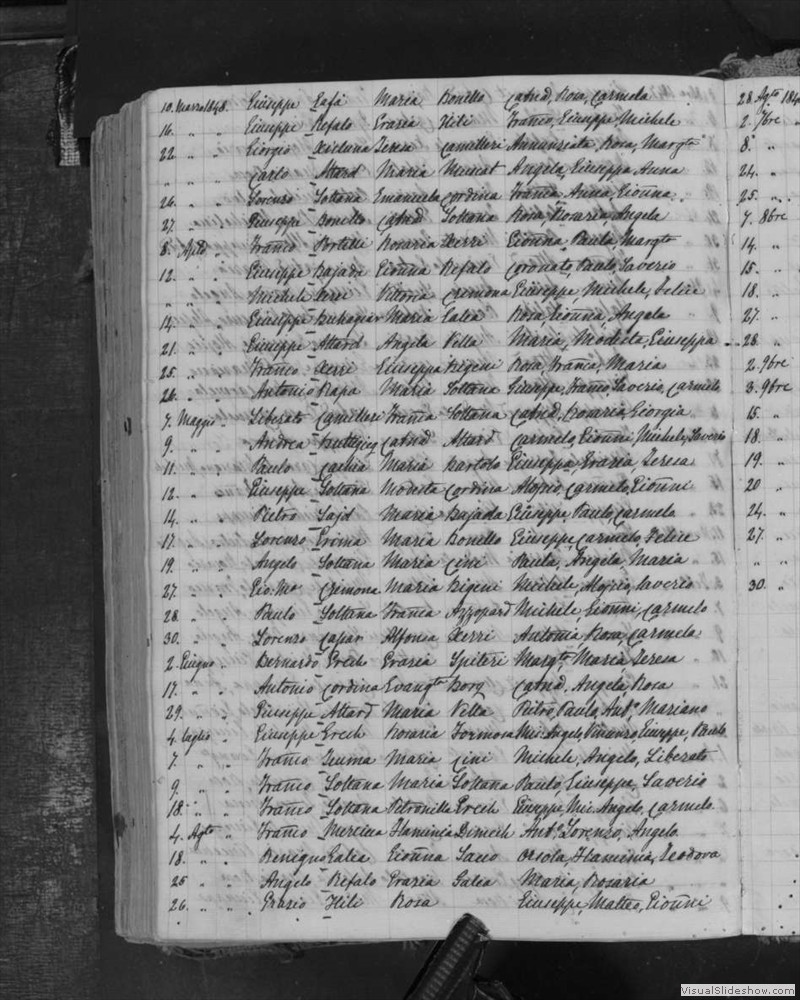 10. Marzo 1848. Giuseppe Zafà Maria Bonello Catnd, Rosa, Carmela
16. „ „ Giuseppe Refalo Grazia Hili Franco, Giuseppe Michele
22. „ „ Giorgio Xicluna Teresa Camilleri Annunziata, Rosa, Margta
„ „ „ Carlo Attard Maria Muscat Angela, Giuseppa Anna
26. „ „ Lorenzo Soltana Emanuela Cordina Franca Anna, Gionna
27. „ „ Giuseppe Bonello Catnd Soltana Rosa, Rosaria Angela
8. Aple „ Franco Portelli Rosaria Xerri Gionna Paula, Margta
12. „ „ Giuseppe Bajada Gionna Refalo Coronato, Paulo, Saverio
„ „ „ Michele Xerri Vittoria Cremona Giuseppe, Michele, Felice
14. „ „ Giuseppe Buhagiar Maria Galea Rosa, Gionna, Angela
21. „ „ Giuseppe Attard Angela Vella Maria, Modesta, Giuseppa
25. „ „ Franco Xerri Giuseppa Bigeni Rosa, Franca, Maria
26. „ „ Antonio Rapa Maria Soltana Giuseppe, Franco, Saverio, Carmelo
7. Maggio „ Liberato Camilleri Franca Soltana Catnd, Rosaria, Giorgia
9. „ „ Andrea Buttigieg Catnd Attard Carmelo, Gionni Michele, Saverio
11. „ „ Paulo Cachia Maria Bartolo Giuseppa, Grazia, Teresa
12. „ „ Giuseppe Soltana Modesta Cordina Aloysio, Carmelo, Gionni
14. „ „ Pietro Sajd Maria Bajada Giuseppe, Paulo, Carmelo
17. „ „ Lorenzo Grima Maria Bonello Giuseppe, Carmelo, Felice
19. „ „ Angelo Soltana Maria Cini Paula, Angela, Maria
27. „ „ Gio. Ma Cremona Maria Bigeni Michele, Aloysio, Saverio
28. „ „ Paulo Soltana Franca Azzopard Michele, Gionni, Carmelo
30. „ „ Lorenzo Capar Alfonsa Xerri Antonia Rosa, Carmela
2. Giugno „ Bernardo Grech Grazia Spiteri Margta, Maria Teresa
17. „ „ Antonio Cordina Evangta Borg Catnd, Angela, Rosa
29. „ „ Giuseppe Attard Maria Vella Pietro, Paulo, Anto Mariano
4. Luglio „ Giuseppe Grech Rosaria Formosa Mic. Angelo Vincenzo Giuseppe, Paulo
7. „ „ Franco Zeuma Maria Cini Michele, Angelo, Liberato
9. „ „ Franco Soltana Maria Soltana Paulo, Giuseppe, Saverio
18. „ „ Franco Soltana Petronilla Grech Giuseppe, Mic. Angelo, Carmelo
4. Agto „ Franco Mercieca Flaminia Dimech Anto Lorenzo, Angelo
18. „ „ Benigno Galea Gionna Sacco Orsola, Flaminia, Teodora
25 „ „ Angelo Refalo Grazia Galea Maria, Rosaria
26. „ „ Grazio Hili Rosa Giuseppe, Matteo, Gionni
28 Agto 184
2. 7bre „
8. „
24. „
25. „ „
7. 8bre
14. „
15. „
18. „
27. „
28. „
2. 9bre
3. 9bre
15. „
18. „
19. „
20 „
24. „
27. „
„ „
30. „
VisualSlideshow.com